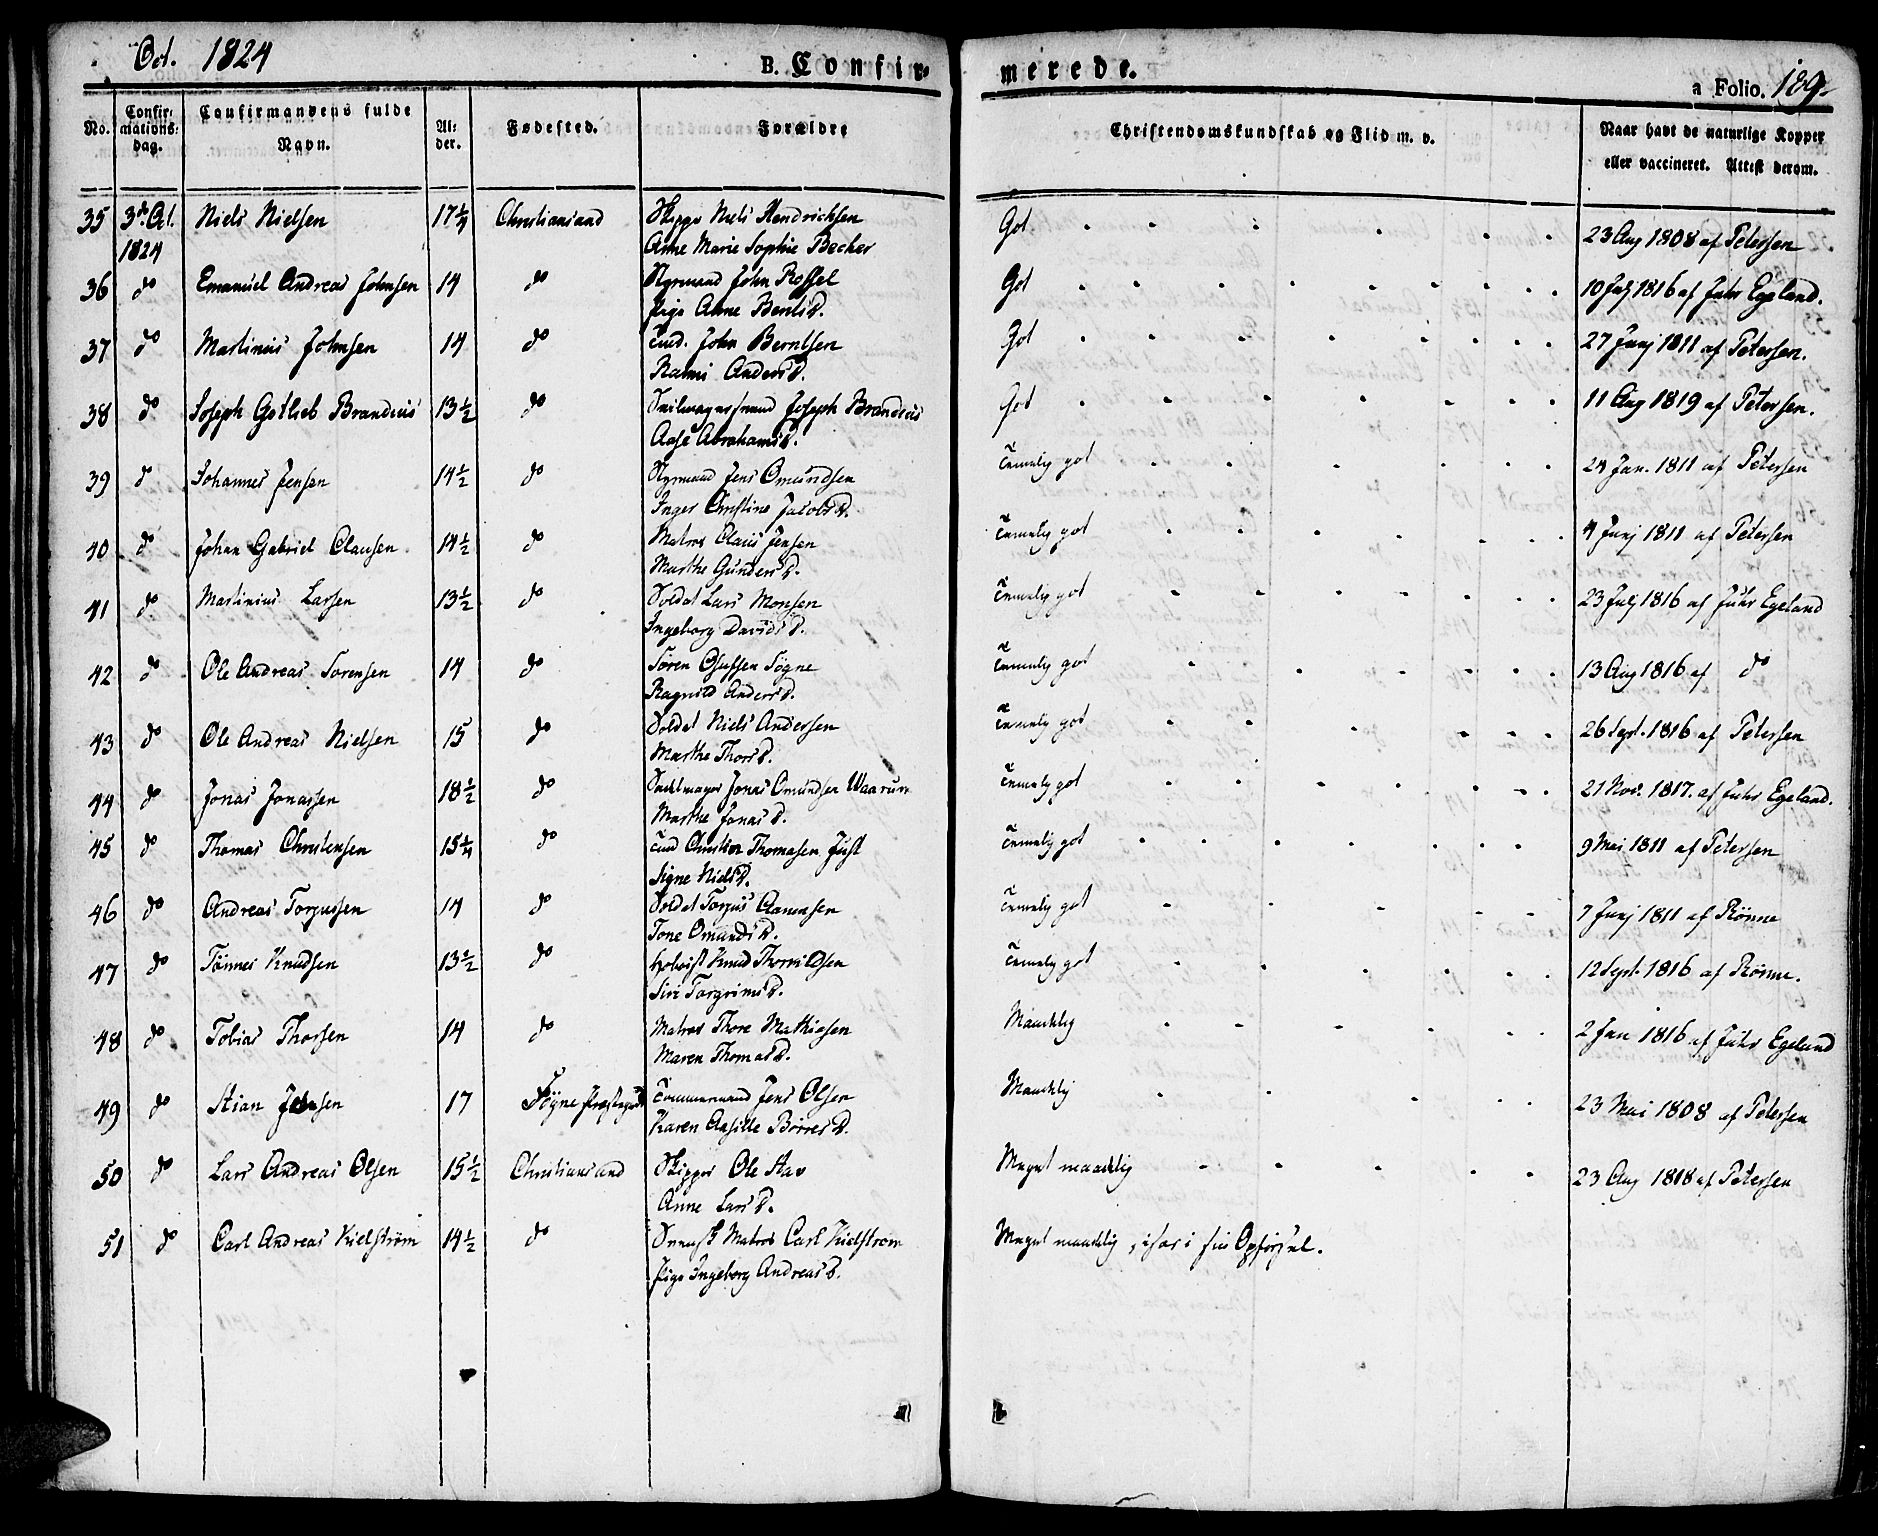 Oct. 1824
B. Confir- merede.
a Folio. 189.
No. Confirmations: dag. Confirmandens fulde Navn. Alder. Fødested. Forældre Christendomskundskab og Flid m. v. Naar havt de naturlige Kopper eller vaccineret. Attest derom.
35 3die Oct. Niels Nielsen 17 1/4 Christiansand Skipper Niels Hendricksen Got 23 Aug 1808 af Petersen
1824 Anne Marie Sophie Becker
36 do Emanuel Andreas Johnsen 14 do Styrmand John Rossel Got 10 Julj 1816 af Juhr Egeland.
Pige Anne Bents D.
37 do Martinius Johnsen 14 do Tind. John Berntsen Got 27 Junj 1811 af Petersen.
Rachel Anders D.
38 do Joseph Gotlieb Brandeis 13 1/2 do Joseph Brandeis Got 11 Aug 1819 af Petersen.
Aase Abrahams D.
39 do Johannes Jensen 14 1/2 do Styrmand Jens Omundsen Temelig got 24 Jan. 1811 af Petersen
Inger Christine Jacobs D.
40 do Johan Gabriel Clausen 14 1/2 do Matros Claus Jensen Temelig got 4 Junj 1811 af Petersen
Marthe Gunders D.
41 do Martinius Larsen 13 1/2 do Soldat Lars Monsen Temelig got 23 Julj 1816 af Juhr Egeland
Ingeborg Davids D.
42 do Ole Andreas Sørensen 14 do Søren Olufsen Søgne Temelig got 13 Aug 1816 af do
Ragnild Anders D.
43 do Ole Andreas Nielsen 15 do Soldat Niels Andersen Temelig got 26 Sept. 1816 af Petersen
Marthe Thors D.
44 do Jonas Jonassen 18 1/2 do Jonas Omundsen Waarum Temelig got 21 Nov. 1817. af Juhr Egeland.
Marthe Jonas D.
45 do Thomas Christensen 15 1/4 do Tind Christen Thomasen Just Temelig got 9 Mai 1811 af Petersen
Signe Niels D.
46 do Andreas Torjussen 14 do Soldat Torjus Aanensen Temelig got 7 Junj 1811 af Rönne
Tone Omunds D.
47 do Tönnes Knudsen 13 1/2 do Knud Thorvildsen Temelig got 12 Sept. 1816 af Rönne.
Siri Torgrims D.
48 do Tobias Thorsen 14 do Matros Thore Mathiasen Maadelig 2 Jan 1816 af Juhr Egeland
Maren Thomas D.
49 do Stian Jensen 17 Søgne Præstegield Tömmermand Jens Olsen Maadelig 23 Mai 1808 af Petersen
Karen Aasille Børres D.
50 do Lars Andreas Olsen 15 1/2 Christiansand Skipper Ole Aas Meget maadelig 23 Aug 1818 af Petersen
Anne Lars D.
51 do Carl Andreas Kielstrøm 14 1/2 do Svensk Matros Carl Kielstrøm Meget maadelig, især i sin Opførsel.
Pige Ingeborg Andreas D.